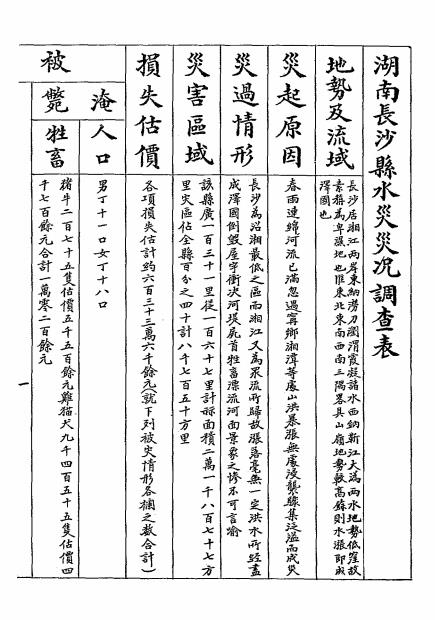 湖南長沙縣水災災況調查表
地勢及流域
長沙居湘江兩岸東納撈刀瀏渭霞凝諸水西納新江大溈兩水地勢低窪故
素稱為卑濕地也惟東北東南西南三隅畧具山嶺地勢較高餘則水漲即成
澤國也
災起原因
春雨連綿河流已滿忽遇寧鄉湘潭等處山洪暴漲無處浸襲驟集泛溢而成災
災過情形
長沙為沿湘最低之區而湘江又為眾流所歸故漲落毫無一定洪水所經盡
成澤國倒毀屋宇衝决河堤屍首牲畜漂流河面景象之慘不可言喻
災害區域
該縣廣一百三十一里從一百六十七里計祘面積二萬一千八百七十七方
里灾區佔全縣百分之四十計八千七百五十方里
損失估價
各項損失估計約六百三十三萬六千餘元(就下列被災情形各欄之數合計)
被
淹
斃
人口
男丁十一口女丁十八口
牲畜
豬牛二百七十五隻估價五千五百餘元雞猫犬九千四百五十五隻估價四
千七百餘元合計一萬零二百餘元
一